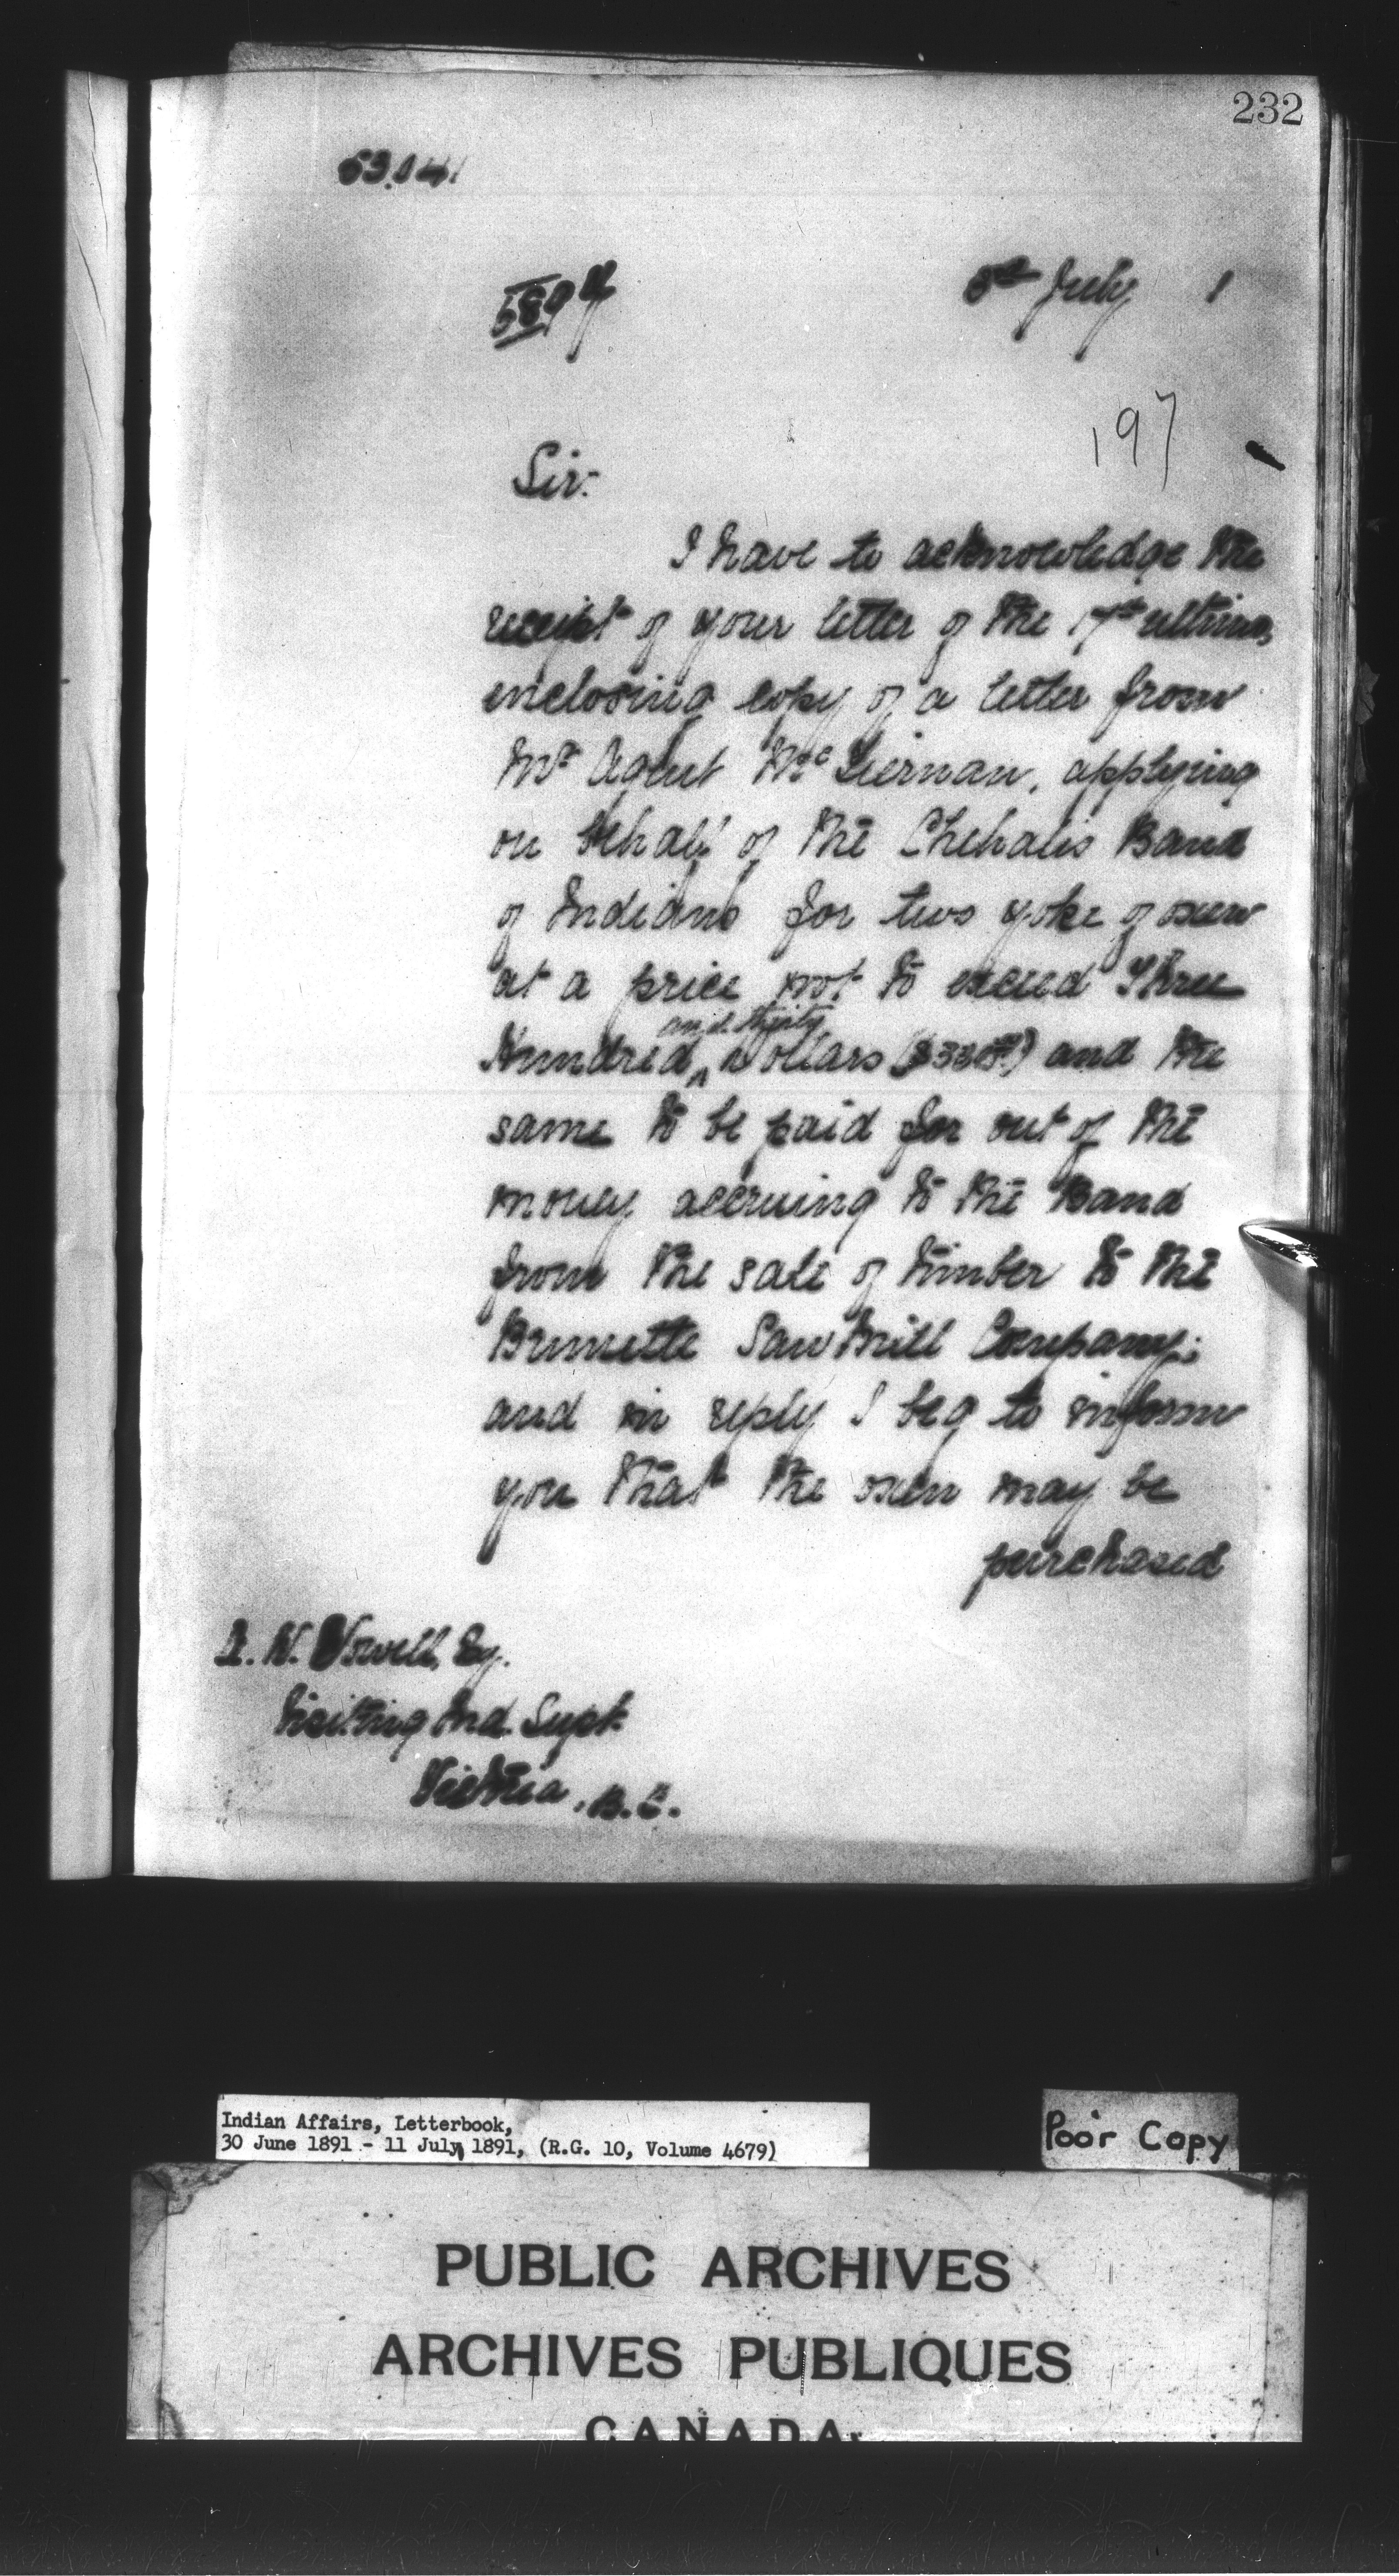 232
53.141
8th July 1
197
Sir:
I have to acknowledge the
receipt of your letter of the 17th ultimo,
inclosing copy of a letter from
Mr Agent McTiernan, applying
on behalf of the Chehalis Band
of Indians for two yoke of oxen
at a price not to exceed Three
and thirty
Hundred ^ Dollars ($330.00) and the
same to be paid for out of the
money accruing to the Band
from the sale of timber to the
Brunette Saw Mill Company;
and in reply I beg to inform
you that the oxen may be
purchased
A. W. Vowell, Esq.
Visiting Ind. Supt.
Victoria, B.C.
Indian Affairs, Letterbook,
30 June 1891 - 11 July 1891, (R.G. 10, Volume 4679)
Poor Copy
PUBLIC ARCHIVES
ARCHIVES PUBLIQUES
CANADA